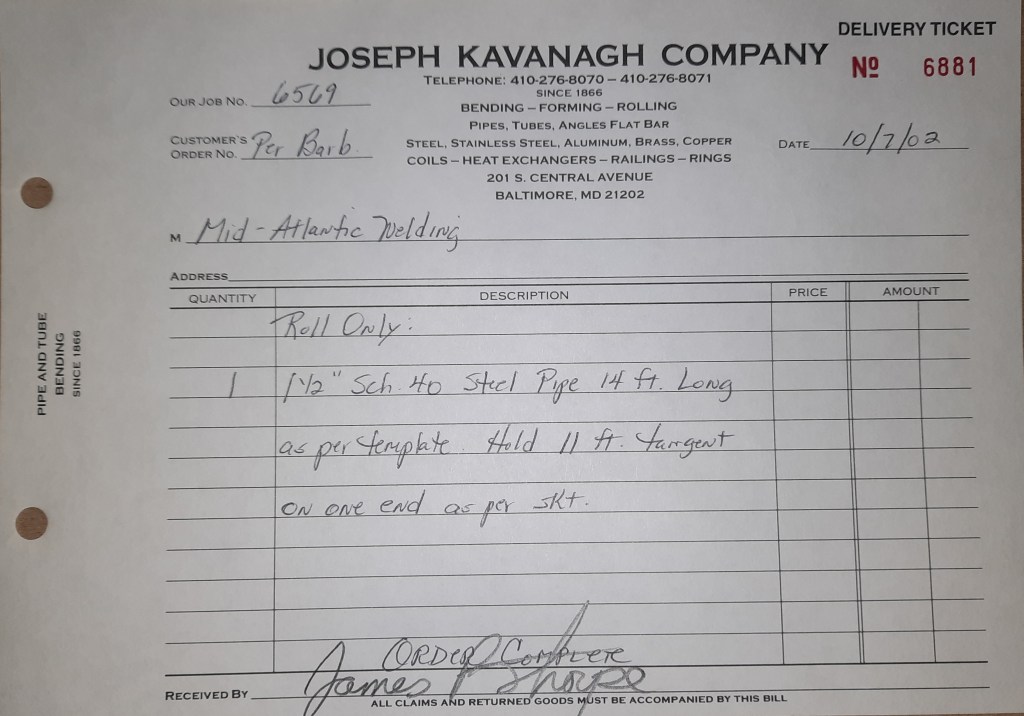 DELIVERY TICKET
JOSEPH KAVANAGH COMPANY
Nº 6881
TELEPHONE: 410-276-8070 – 410-276-8071
SINCE 1866
OUR JOB NO. 6569
BENDING – FORMING – ROLLING
PIPES, TUBES, ANGLES FLAT BAR
CUSTOMER'S
ORDER NO. Per Barb.
STEEL, STAINLESS STEEL, ALUMINUM, BRASS, COPPER
DATE 10/7/02
COILS – HEAT EXCHANGERS – RAILINGS – RINGS
201 S. CENTRAL AVENUE
BALTIMORE, MD 21202
M Mid-Atlantic Welding
ADDRESS
QUANTITY DESCRIPTION PRICE AMOUNT
Roll Only:
1 1½" Sch. 40 Steel Pipe 14 ft. Long
as per template. Hold 11 ft. tangent
on one end as per skt.
ORDER COMPLETE
RECEIVED BY James P Sharpe
ALL CLAIMS AND RETURNED GOODS MUST BE ACCOMPANIED BY THIS BILL
PIPE AND TUBE
BENDING
SINCE 1866